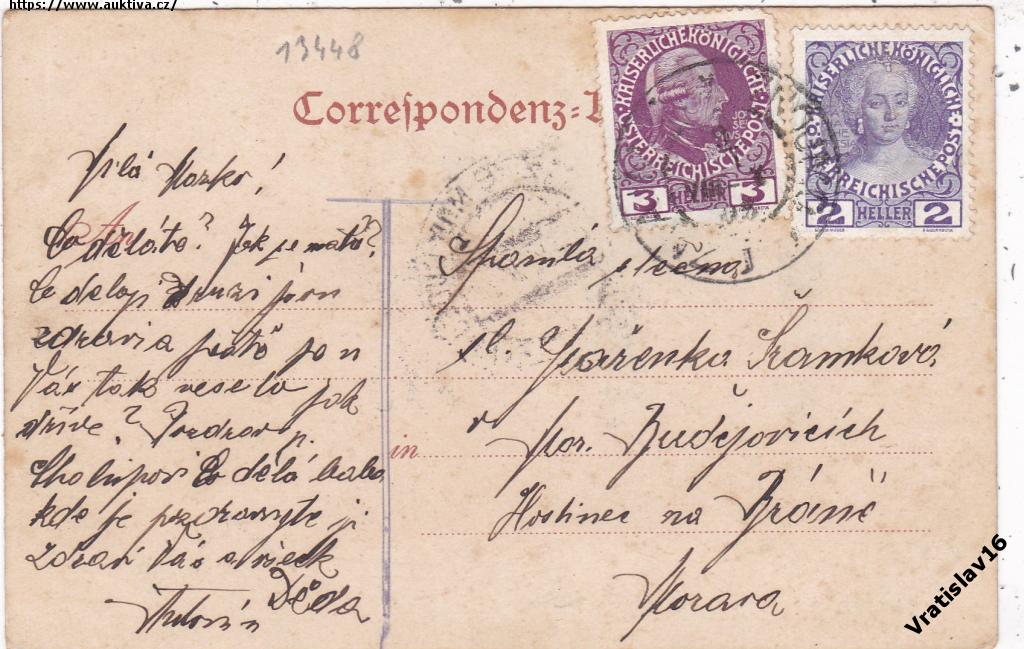 https://www.auktiva.cz/
13448
Correspondenz-
KAISERLICHE KÖNIGLICHE
ÖSTERREICHISCHE POST
JOSEFUS
3 HELLER 3
KAISERLICHE KÖNIGLICHE
ÖSTERREICHISCHE POST
2 HELLER 2
Milá Mařko!
An
Co děláte? Jak se máte?
Co dělají druzí jsou
zdravia jsou
Vás tak veselo jak
dříve? Pozdrav p.
Co dělá baba
kde je pozdravujte ji
zdraví Vás a všeck
Děda
Antonín
Spanilá slečna
sl. Mařenka Šramková
v Mor. Budějovicích
in
Hostinec na Bráně
Morava
Vratislav16